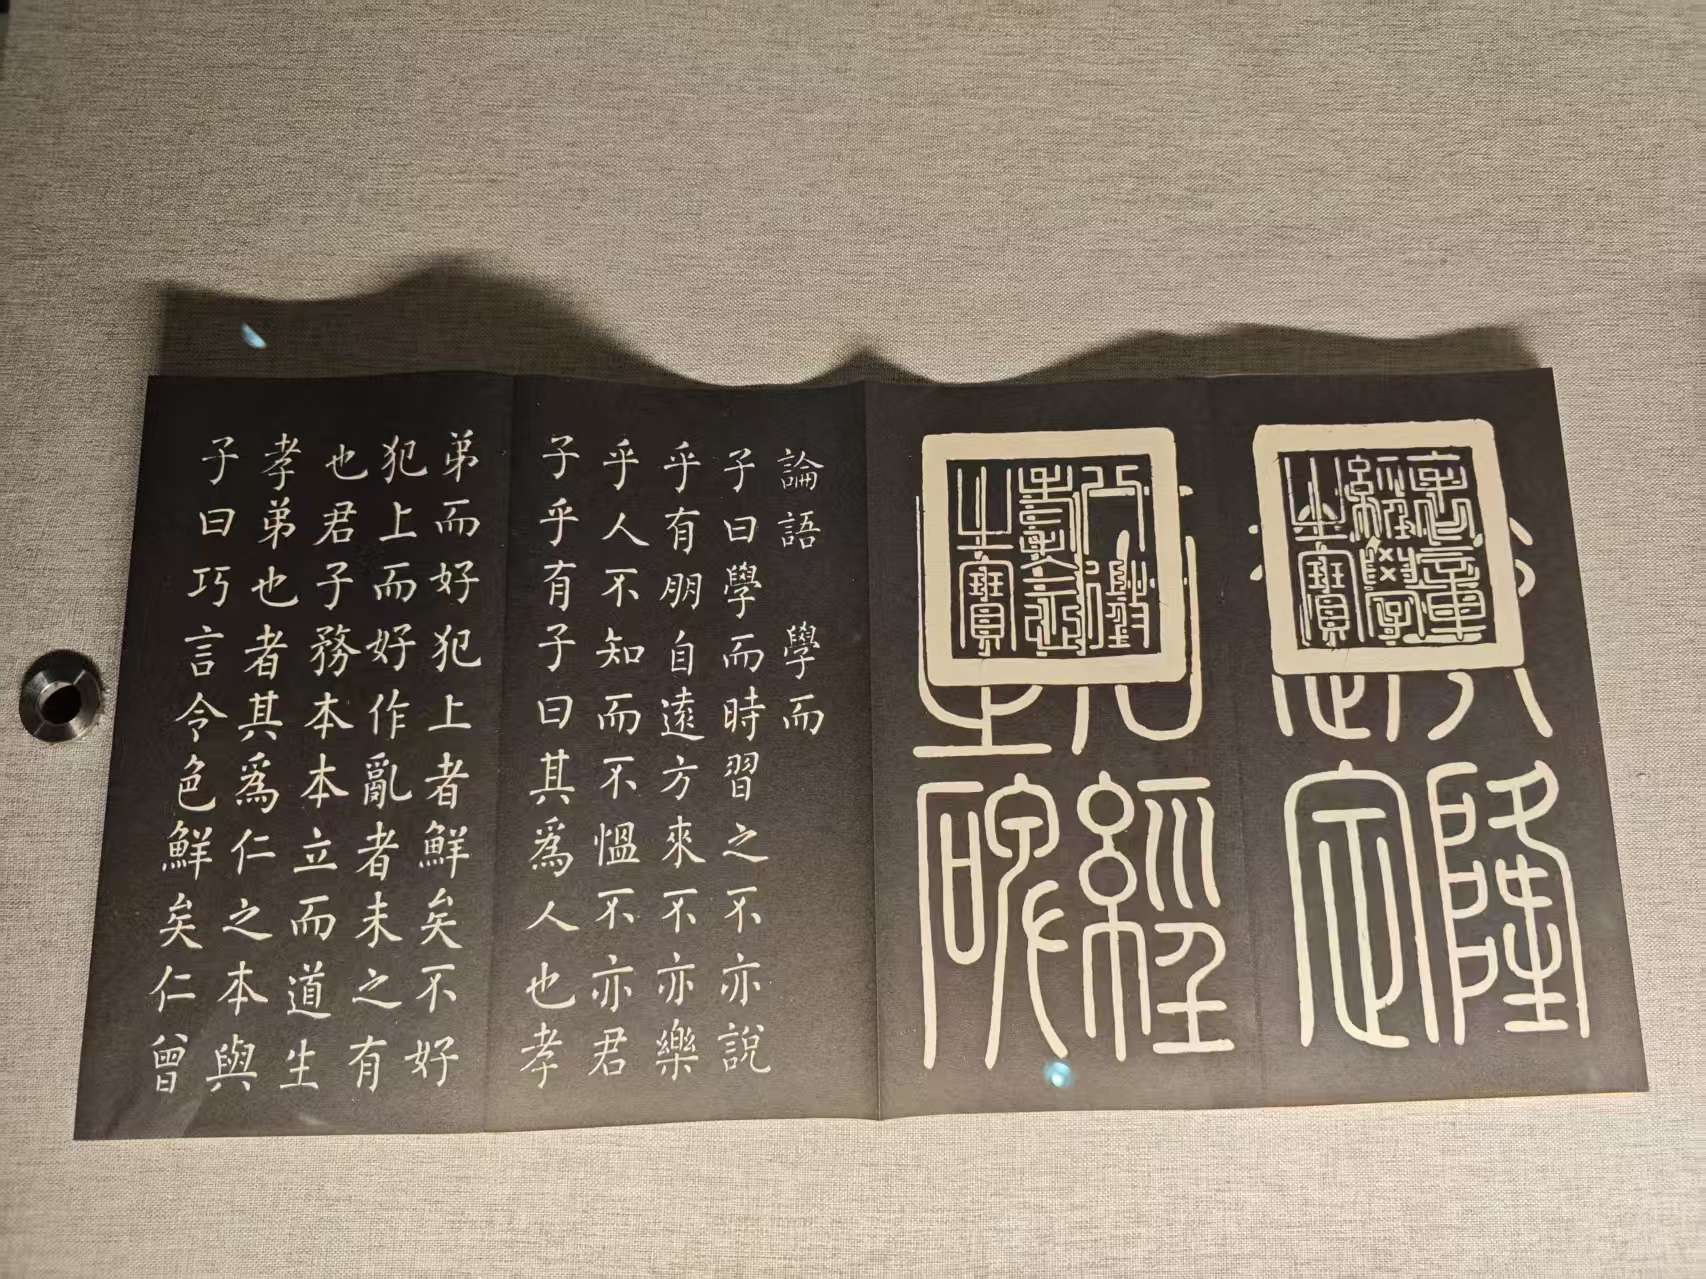 乾隆
御定
石經
之碑
表章
經學
之寶
八徵
耄念
之寶
論語 學而
子曰學而時習之不亦說
乎有朋自遠方來不亦樂
乎人不知而不慍不亦君
子乎有子曰其爲人也孝
弟而好犯上者鮮矣不好
犯上而好作亂者未之有
也君子務本本立而道生
孝弟也者其爲仁之本與
子曰巧言令色鮮矣仁曾